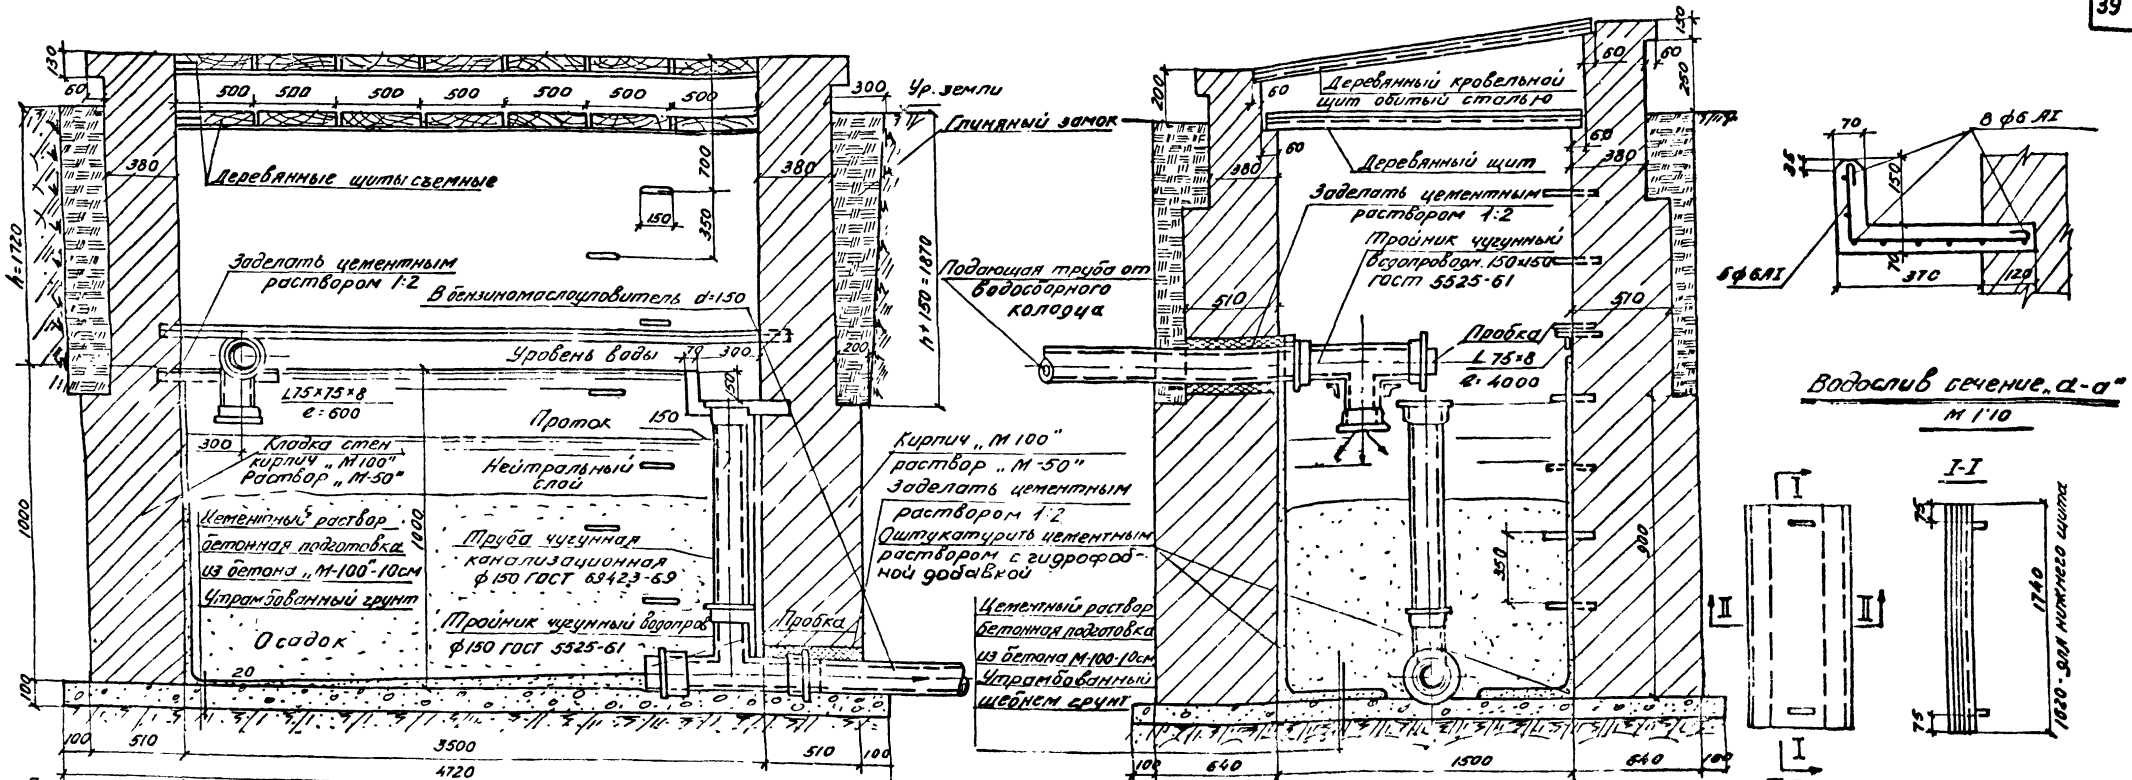 39
130
60
500 500 500 500 500 500 500
300
Ур. земли
Глиняный замок
380
380
Деревянные щиты съемные
700
150
350
h=1720
h+150=1870
Заделать цементным
раствором 1:2
В бензиномаслоуловитель d=150
Уровень воды
70
300
200
150
L75×75×8
e=600
300
Проток
150
Кладка стен
кирпич „М100"
Раствор „М-50"
Нейтральный
слой
1000
1000
Цементный раствор
бетонная подготовка
из бетона „М-100"-10см
Утрамбованный грунт
Труба чугунная
канализационная
ф150 ГОСТ 69423-69
Осадок
Тройник чугунный водопров
ф150 ГОСТ 5525-61
Пробка
20
100
100
510
3500
510
100
4720
Кирпич „М100"
раствор „М-50"
Заделать цементным
раствором 1:2
Оштукатурить цементным
раствором с гидрофоб-
ной добавкой
Цементный раствор
бетонная подготовка
из бетона М-100-10см
Утрамбованный
щебнем грунт
200
60
Деревянный кровельной
щит обитый сталью
60
60
150
250
60
60
Деревянный щит
380
380
Заделать цементным
раствором 1:2
Тройник чугунный
водопроводн. 150×150
ГОСТ 5525-61
Подающая труба от
водосборного
колодца
510
510
Пробка
L 75×8
e=4000
900
350
100
640
1500
640
100
70
8 ф6 АI
35
150
70
5ф6АI
370
120
Водослив сечение „а-а"
М 1:10
I-I
I
II
II
I
75
75
1740
1820-для нижнего щита